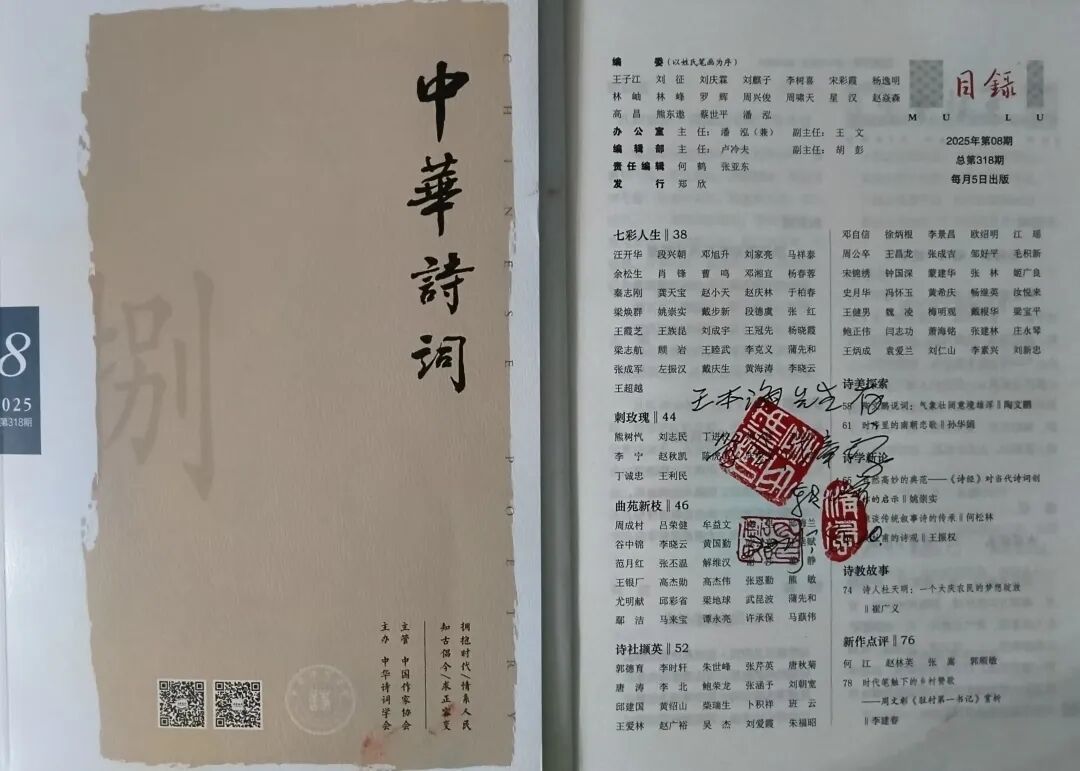 中華詩词
CHINESE POETRY
捌
8
2025
第318期
拥抱时代/情系人民
知古倡今/求正容变
主管 中国作家协会
主办 中华诗词学会
目録
MU LU
2025年第08期
总第318期
每月5日出版
编 委（以姓氏笔画为序）
王子江 刘 征 刘庆霖 刘麒子 李树喜 宋彩霞 杨逸明
林 岫 林 峰 罗 辉 周兴俊 周啸天 星 汉 赵焱森
高 昌 熊东遨 蔡世平 潘 泓
办 公 室 主 任：潘 泓（兼） 副主任：王 文
编 辑 部 主 任：卢冷夫 副主任：胡 彭
责任编辑 何 鹤 张亚东
发 行 郑 欣
七彩人生‖38
汪开华 段兴朝 邓旭升 刘家亮 马祥泰
余松生 肖 锋 曹 鸣 邓湘宜 杨春蓉
秦志刚 龚天宝 赵小天 赵庆林 于柏春
梁焕群 姚崇实 戴步新 段德虞 张 红
王霞芝 王族昆 刘成宇 王冠先 杨晓霞
梁志航 顾 岩 王睦武 李克义 蒲先和
张成军 左振汉 戴庆生 黄海涛 李晓云
王超越
刺玫瑰‖44
熊树忱 刘志民
李 宁 赵秋凯
丁诚忠 王利民
曲苑新枝‖46
周成村 吕荣健 牟益文
谷中锦 李晓云 黄国勤
范月红 张丕温 解维汉 静
王银厂 高杰勋 高杰伟 张恩勤 熊 敏
尤明献 邱彩省 梁地球 武昆波 蒲先和
鄢 洁 马来宝 谭永亮 许承保 马蕻伟
诗社撷英‖52
郭德育 李时轩 朱世峰 张芹英 唐秋菊
唐 涛 李 北 鲍荣龙 张涵予 刘朝宽
邱建国 黄绍山 柴瑞生 卜积祥 班 云
王爱林 赵广裕 吴 杰 刘爱霞 朱福昭
邓自信 徐炳根 李景昌 欧绍明 江 瑶
周公卒 王昌龙 张成吉 邹好平 毛积新
宋锦绣 钟国深 蒙建华 张 林 姬广良
史月华 冯怀玉 黄希庆 畅继英 汝悦来
王健男 魏 凌 梅明观 戴根华 梁宝平
鲍正伟 闫志功 萧海铭 张建林 庄永琴
王炳成 袁爱兰 刘仁山 李素兴 刘新忠
诗美探索
58 陶文鹏说词：气象壮阔意境雄浑‖陶文鹏
61 时序里的南朝恋歌‖孙华娟
王本海先生存
诗学新论
65 自然高妙的典范——《诗经》对当代诗词创
作的启示‖姚崇实
谈传统叙事诗的传承‖何松林
甫的诗观‖王振权
诗教故事
74 诗人杜天明：一个大庆农民的梦想绽放
‖崔广义
新作点评‖76
何 江 赵林英 张 嵩 郭顺敏
78 时代笔触下的乡村赞歌
——周文彰《驻村第一书记》赏析
‖李建春